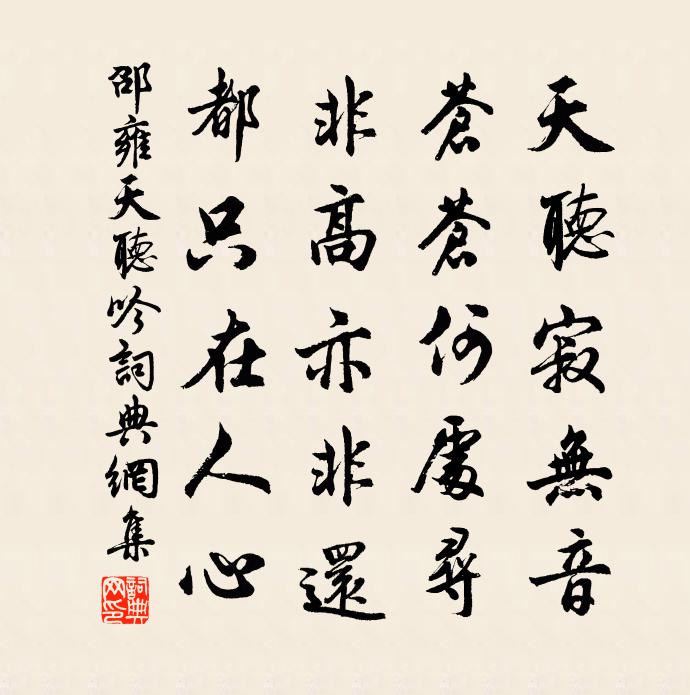 天聽寂無音
蒼蒼何處尋
非高亦非還
都只在人心
邵雍天聽吟詞典網集
詞典网印